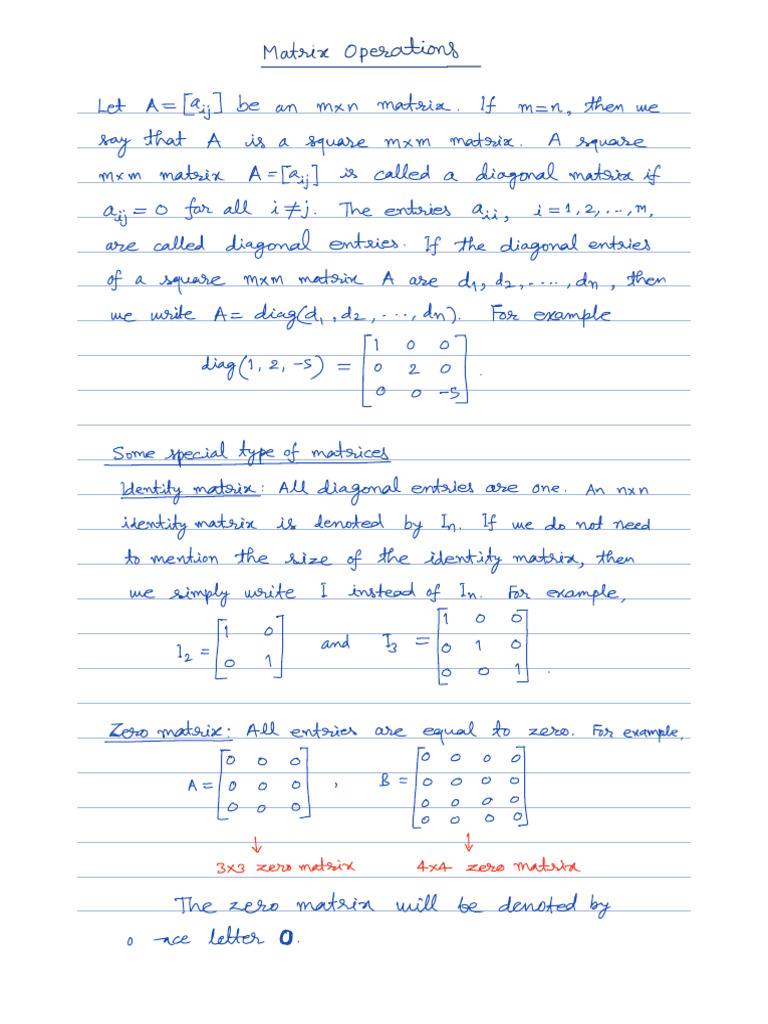 Matrix Operations
Let A = [aij] be an m×n matrix. If m=n, then we
say that A is a square m×m matrix. A square
m×m matrix A = [aij] is called a diagonal matrix if
aij = 0 for all i ≠ j. The entries aii, i = 1, 2, ..., m,
are called diagonal entries. If the diagonal entries
of a square m×m matrix A are d1, d2, ....., dn, then
we write A = diag(d1, d2, ..., dn). For example
diag(1, 2, -5) = [1 0 0
0 2 0
0 0 -5].
Some special type of matrices
Identity matrix: All diagonal entries are one. An n×n
identity matrix is denoted by In. If we do not need
to mention the size of the identity matrix, then
we simply write I instead of In. For example,
I2 = [1 0
0 1] and I3 = [1 0 0
0 1 0
0 0 1].
Zero matrix: All entries are equal to zero. For example,
A = [0 0 0
0 0 0
0 0 0], B = [0 0 0 0
0 0 0 0
0 0 0 0
0 0 0 0]
↓ ↓
3×3 zero matrix 4×4 zero matrix
The zero matrix will be denoted by
letter 0.